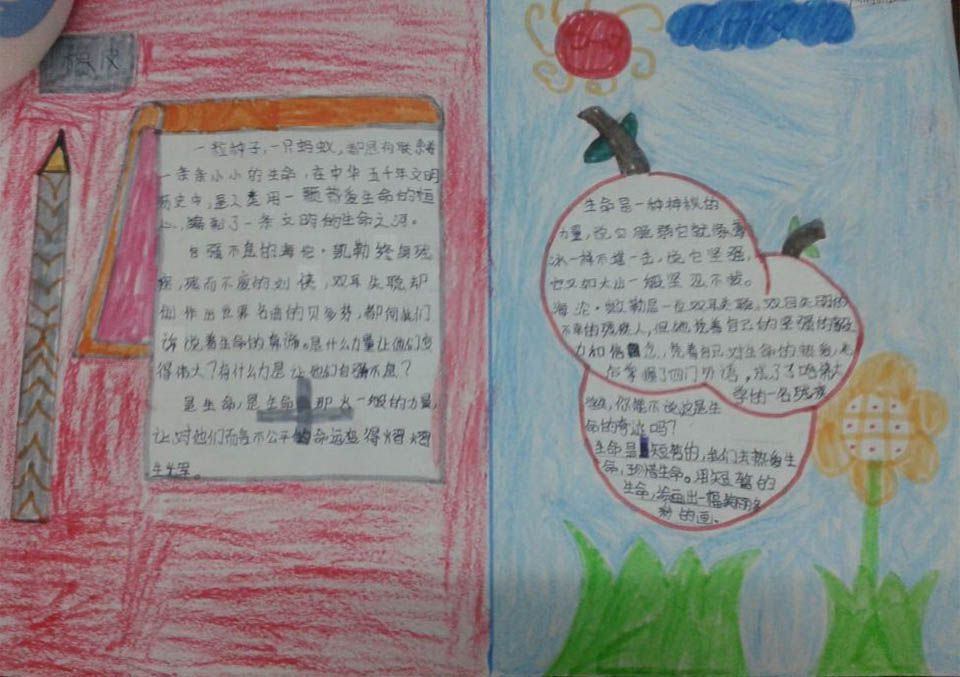 橡皮
一粒种子,一只蚂蚁,都是有联系着
一条条小小的生命,在中华五千年文明
历史中,是人类用一颗热爱生命的恒
心,编制了一条文明的生命之河。
自强不息的海伦·凯勒终身残
疾,残而不废的刘侠,双耳失聪却
创作出世界名曲的贝多芬,都向我们
诉说着生命的真谛。是什么力量让他们变
得伟大?有什么力是让他们自强不息?
是生命,是生命那火一般的力量,
让对他们而言不公平的命运变得熠熠
生辉。
生命是一种神秘的
力量,说它脆弱它就像薄
冰一样不堪一击,说它坚强,
它又如大山一般坚忍不拔。
海沦·凯勒是一位双耳失聪,双目失明的
不幸的残疾人,但她凭着自己的坚强的毅
力和信念,凭着自己对生命的热爱,
掌握了四门外语,
学的一名残疾
学生,你能不说这是生
命的奇迹吗?
生命是短暂的,我们去热爱生
命,珍惜生命。用短暂的
生命,绘画出一幅绚丽多
彩的画。